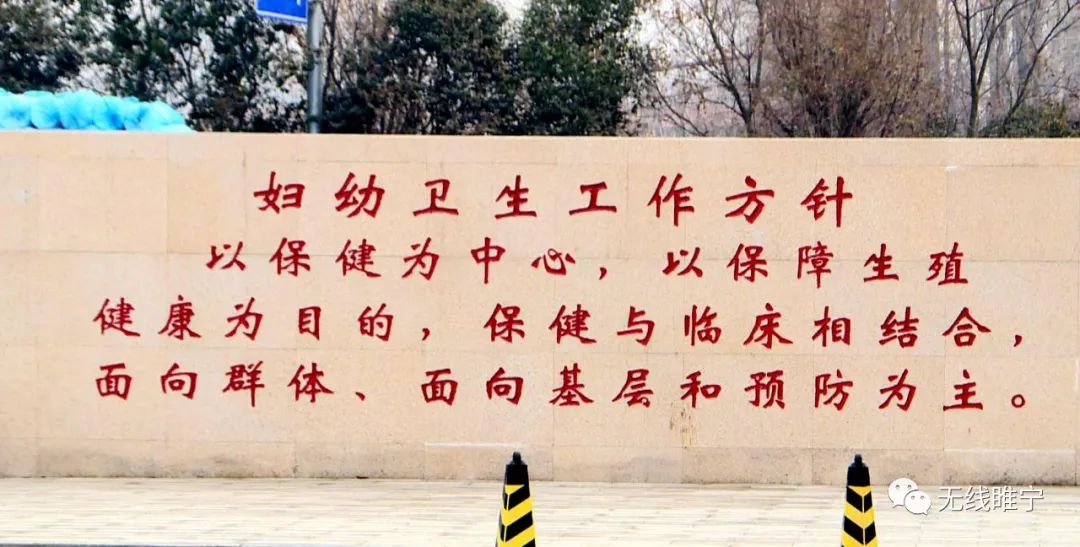 妇幼卫生工作方针
以保健为中心，以保障生殖
健康为目的，保健与临床相结合，
面向群体、面向基层和预防为主。
无线睢宁